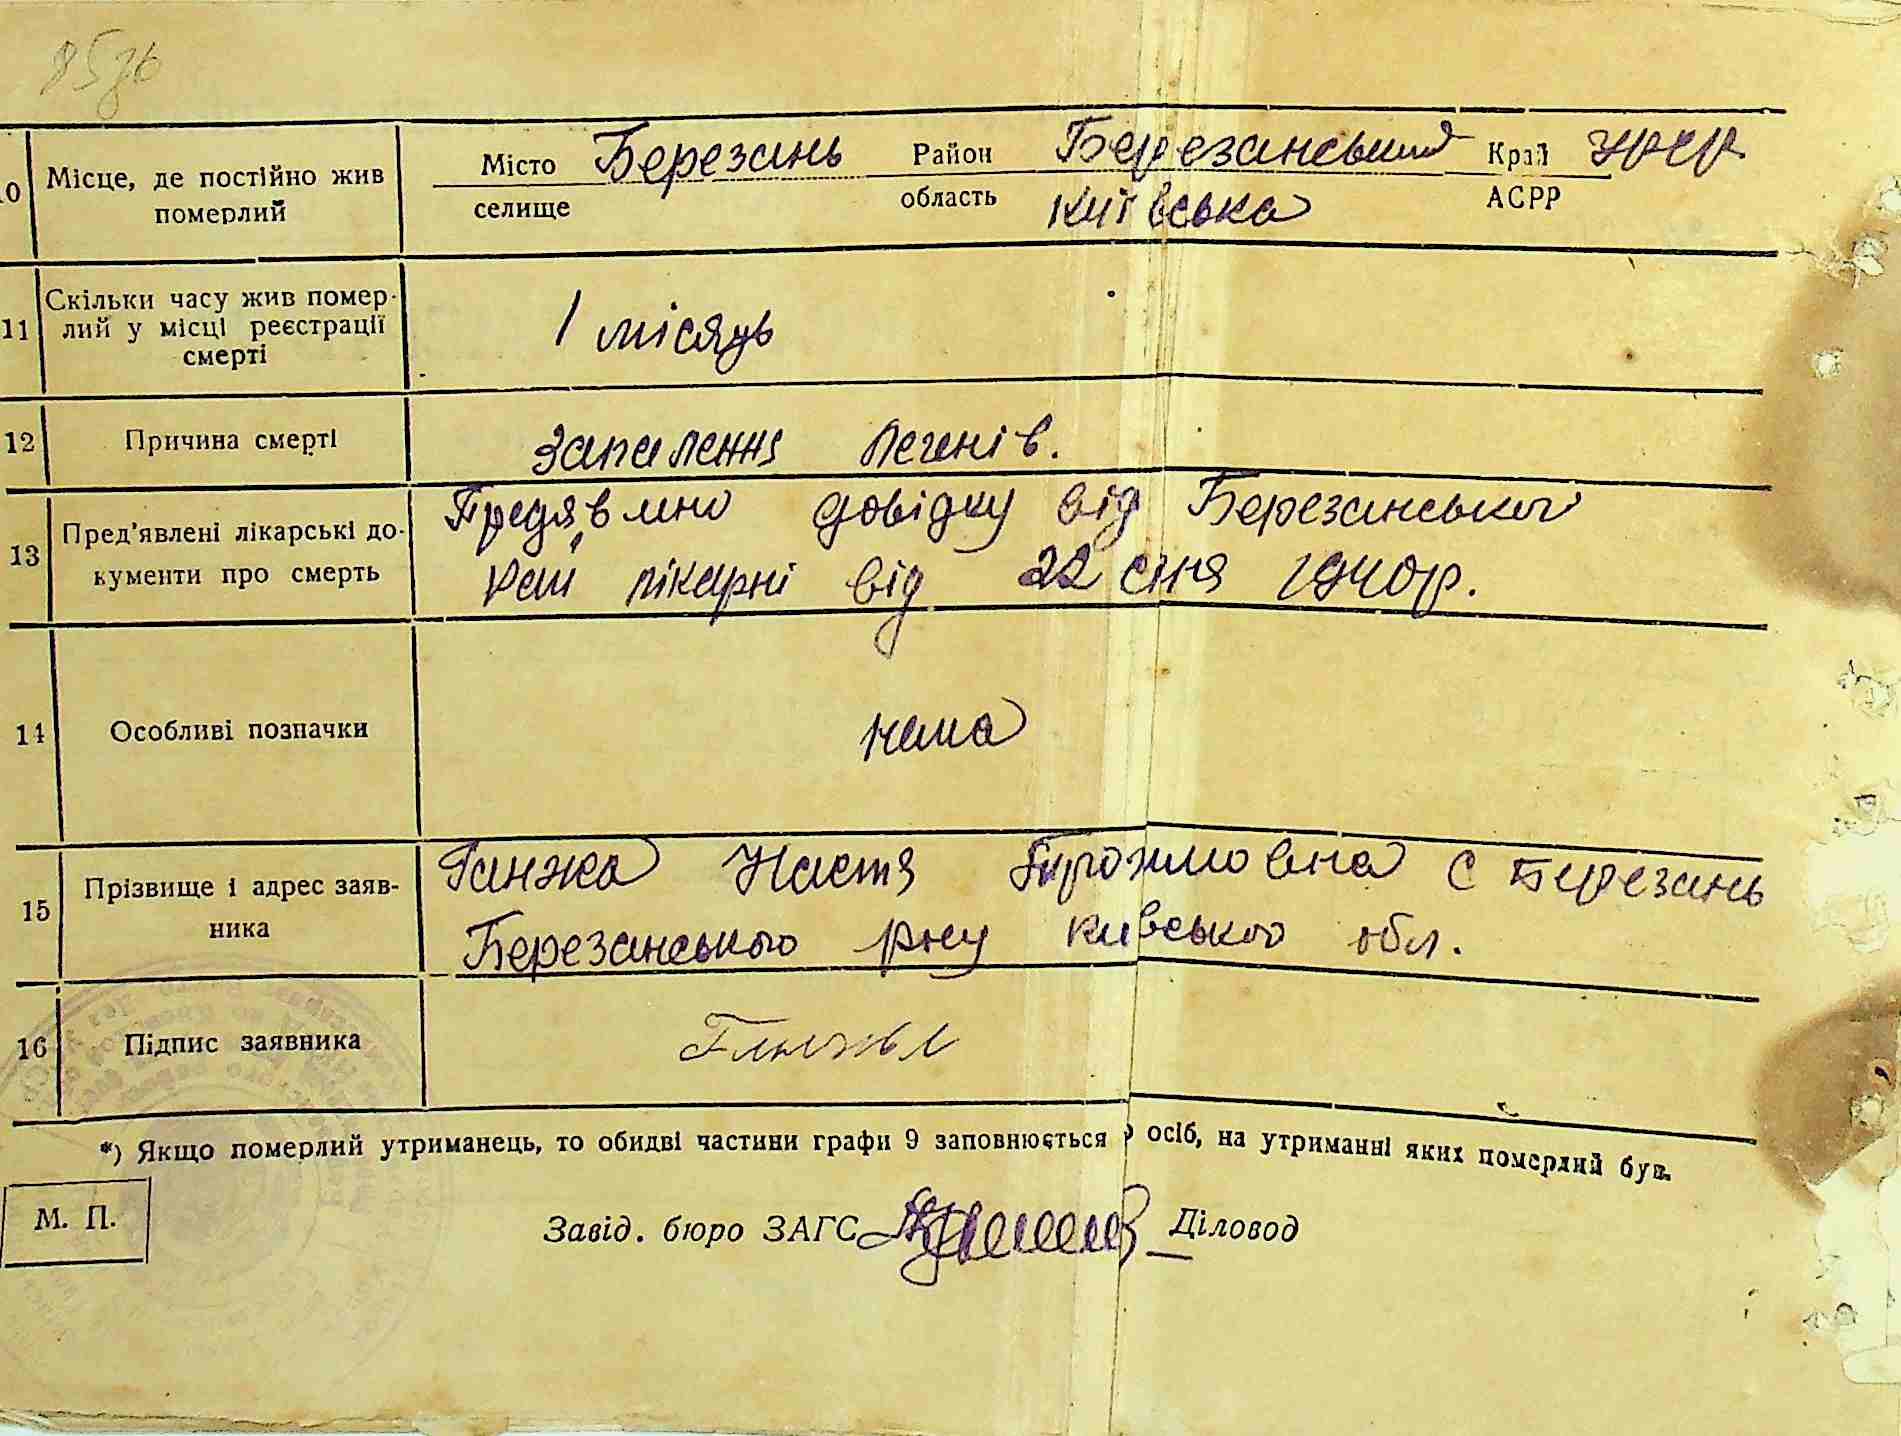 10 Місце, де постійно жив померлий
Місто Березань Район Березанський Край УРСР
селище область Київська АСРР
11 Скільки часу жив помер-
лий у місці реєстрації
смерті
1 місяць
12 Причина смерті
запалення легенів.
13 Пред'явлені лікарські до-
кументи про смерть
Предявлено довідку від Березанської
рай лікарні від 22 січня 1940р.
14 Особливі позначки
нема
15 Прізвище і адрес заяв-
ника
Ганжа Настя с Березань
Березанського рну Київської обл.
16 Підпис заявника
Ганжа
*) Якщо померлий утриманець, то обидві частини графи 9 заповнюється осіб, на утриманні яких померлий був.
М. П.
Завід. бюро ЗАГС Діловод